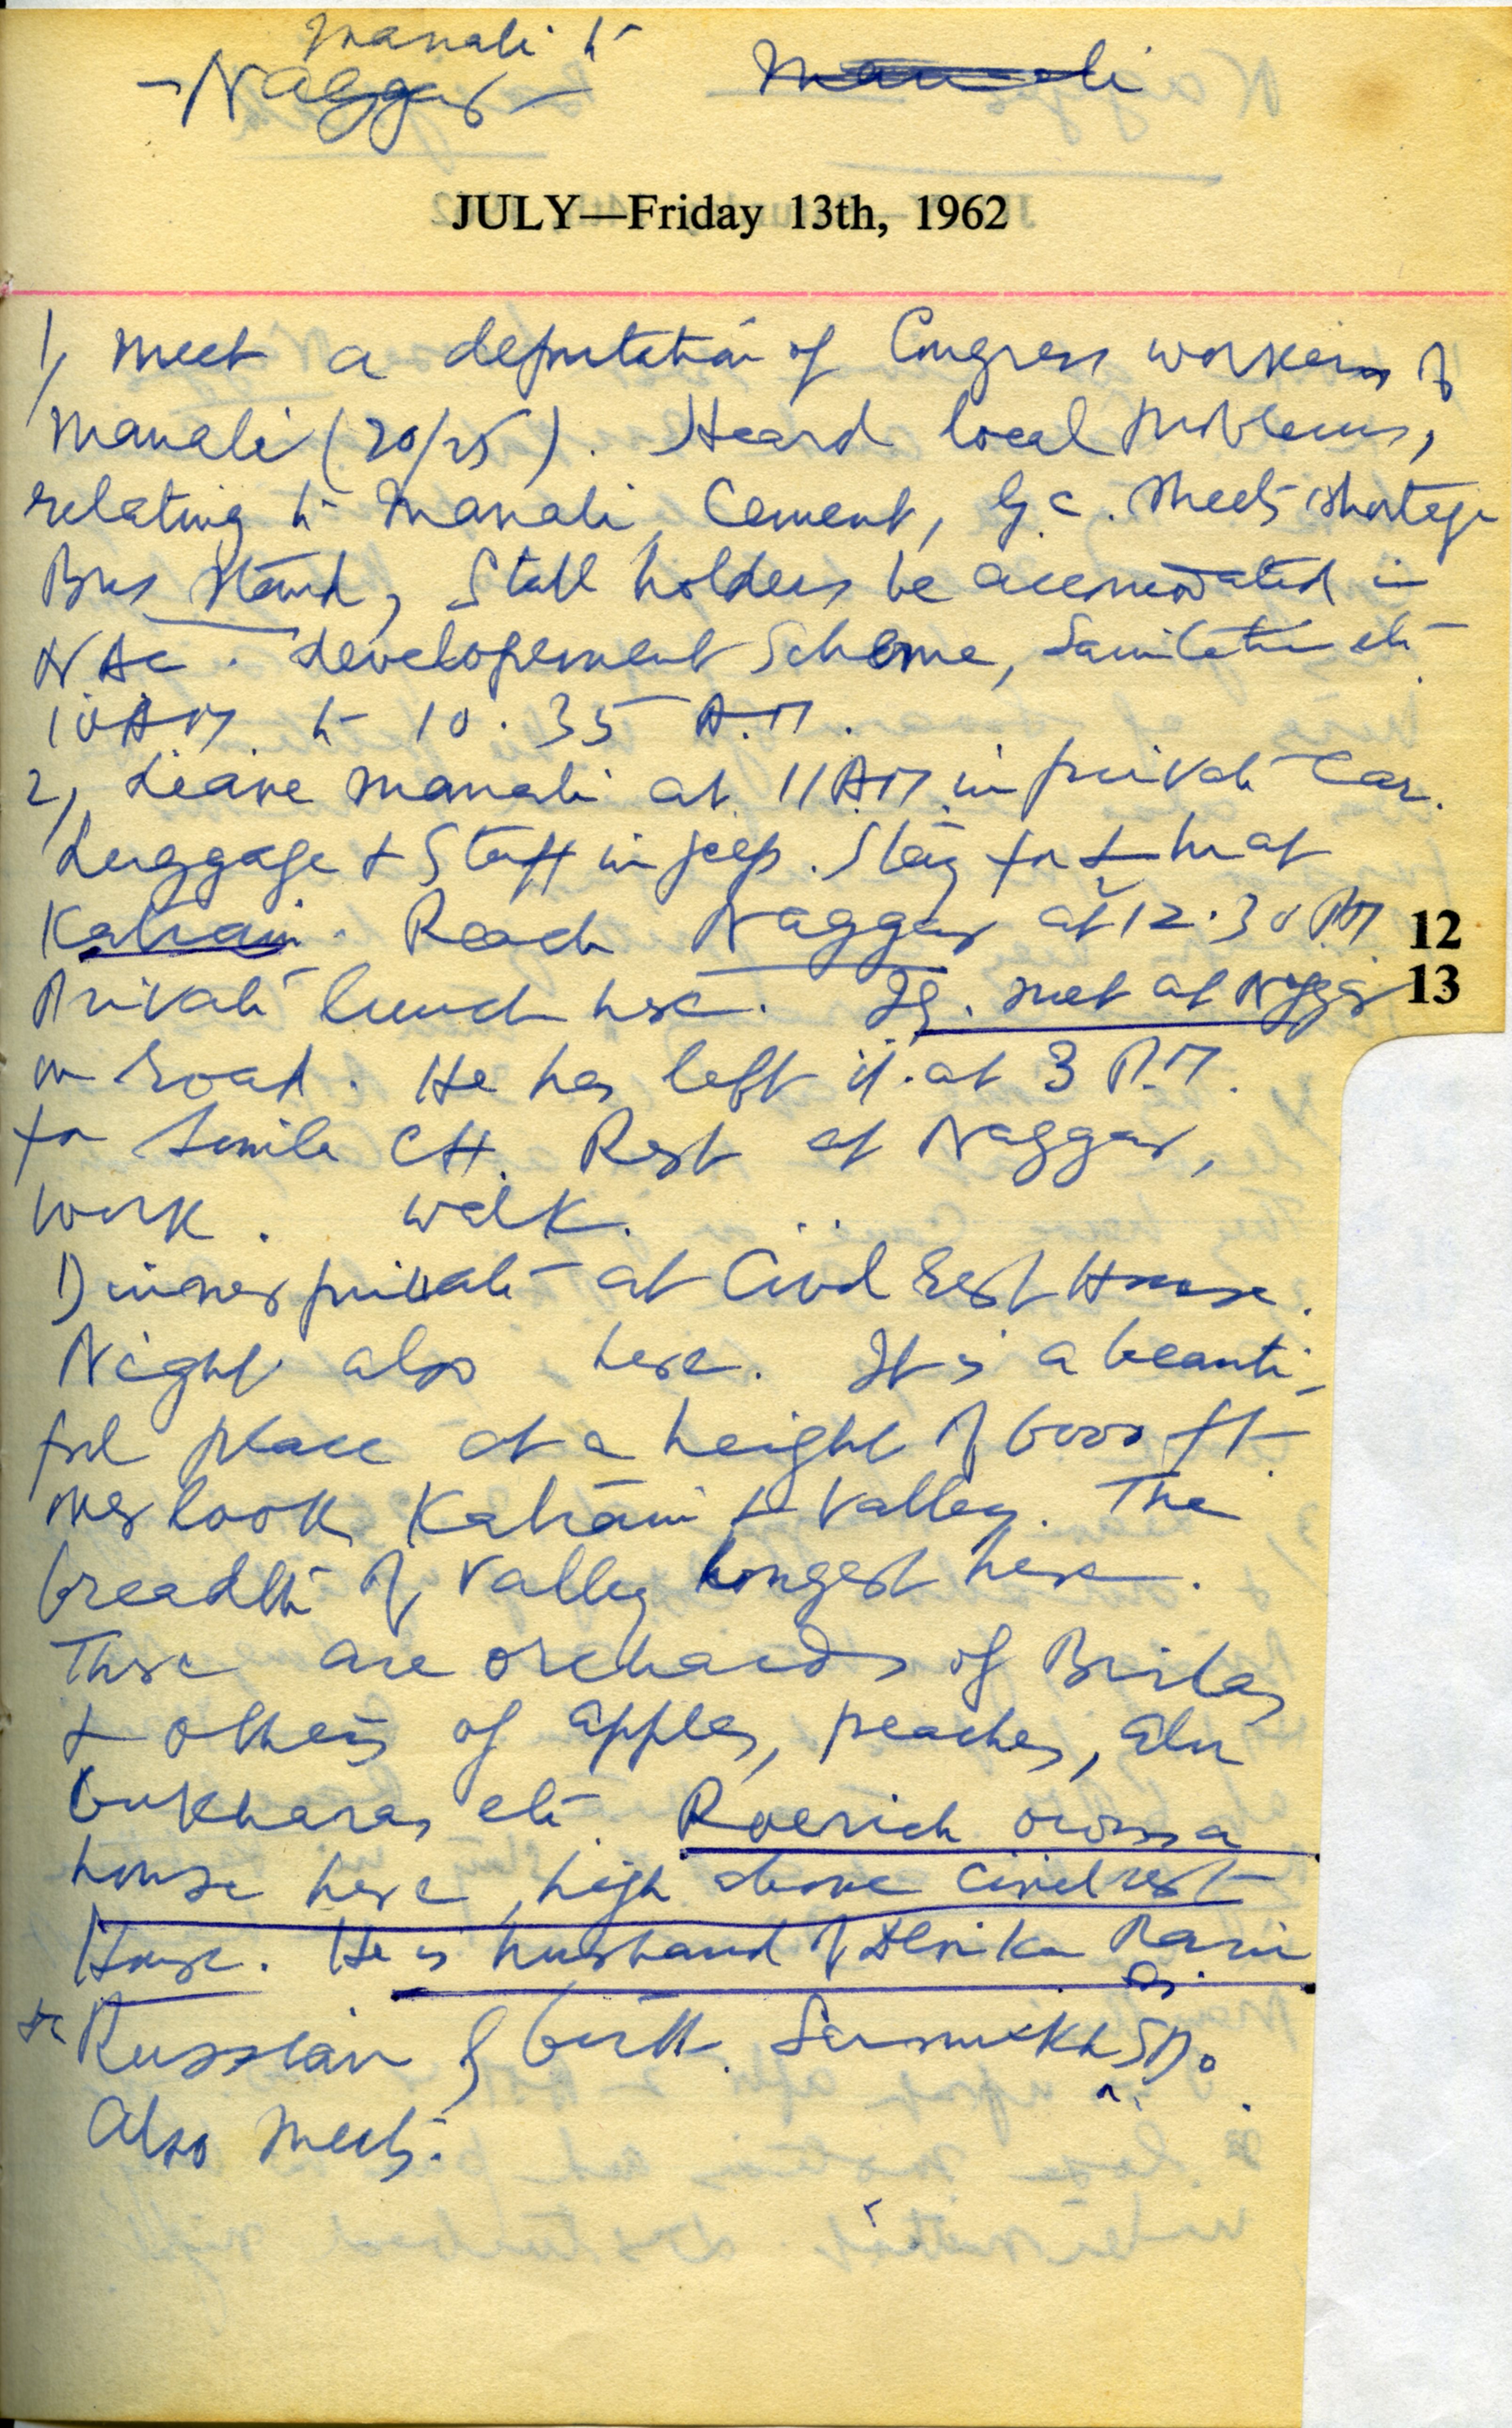 Manali to
- Naggar -
JULY—Friday 13th, 1962
1, Meet a deputation of Congress workers of
Manali (20/25). Heard local problems,
relating to Manali, Cement, G.C. Sheets shortage
Bus Stand, Stall holders be accomodated in
NAC. developement Scheme, Sanitation etc
10 AM to 10.35 A.M.
2, Leave Manali at 11 AM in private Car.
Luggage & Staff in jeep. Stay for ½ hr at
Katrain. Reach Naggar at 12.30 PM
12
Private lunch here. met at Naggar
13
on road. He has left it at 3 P.M.
for Simla Rest at Naggar,
work. walk.
Dinner private at Civil Rest House.
Night also here. It is a beauti-
ful place at a height of 6000 ft
over look Katrain & Valley. The
breadth of Valley longest here.
There are orchards of Birlas
& others of apples, peaches, alu
bukharas etc. Roerich owns a
house here, high above Civil rest
House. He is husband of Devika Rani
Russian by birth.
Also meets.